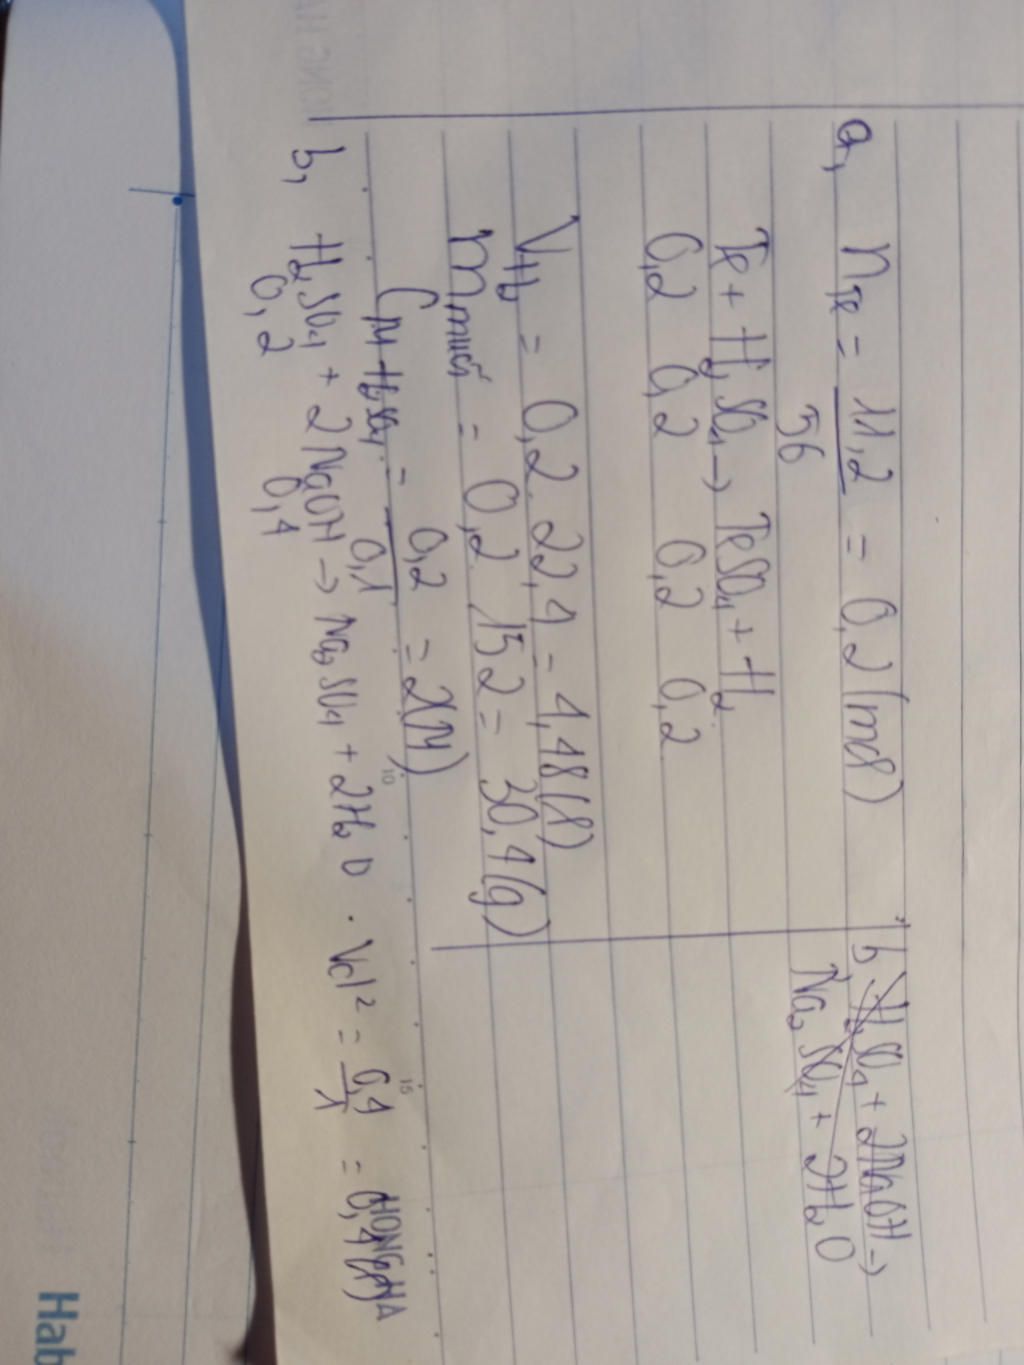 a, nFe = 11,2 / 56 = 0,2 (mol)
Fe + H2SO4 → FeSO4 + H2
0,2 0,2 0,2 0,2
VH2 = 0,2. 22,4 = 4,48 (l)
mmuối = 0,2. 152 = 30,4 (g)
CM H2SO4 = 0,2 / 0,1 = 2 (M)
b, H2SO4 + 2NaOH → Na2SO4 + 2H2O . Vd2 = 0,4 / 1 = 0,4 (l)
0,2 0,4
b, H2SO4 + 2NaOH →
Na2SO4 + 2H2O
10
15
HONG HA
Hab